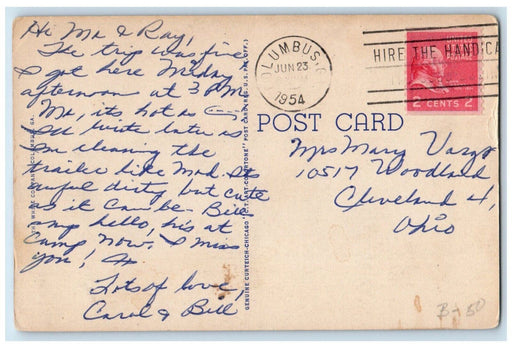 Hi Ma & Ray,
The trip was fine
I got here Monday
afternoon at 3 P.M.
Ma, its, hot as
I'll write later is
I'm cleaning the
trailer like Mad. Its
awful dirty, but cute
as it can be. Bill
says hello, he's at
camp now. I miss
you!
Lots of love,
Carol & Bill
COLUMBUS, GA.
GENUINE CURTEICH-CHICAGO "C.T. ART-COLORTONE" POST CARD (REG. U.S. PAT. OFF.)
COLUMBUS
JUN 23
1954
HIRE THE HANDICA
2 CENTS 2
POST CARD
Mrs Mary
10517 Woodland
Cleveland 4,
Ohio